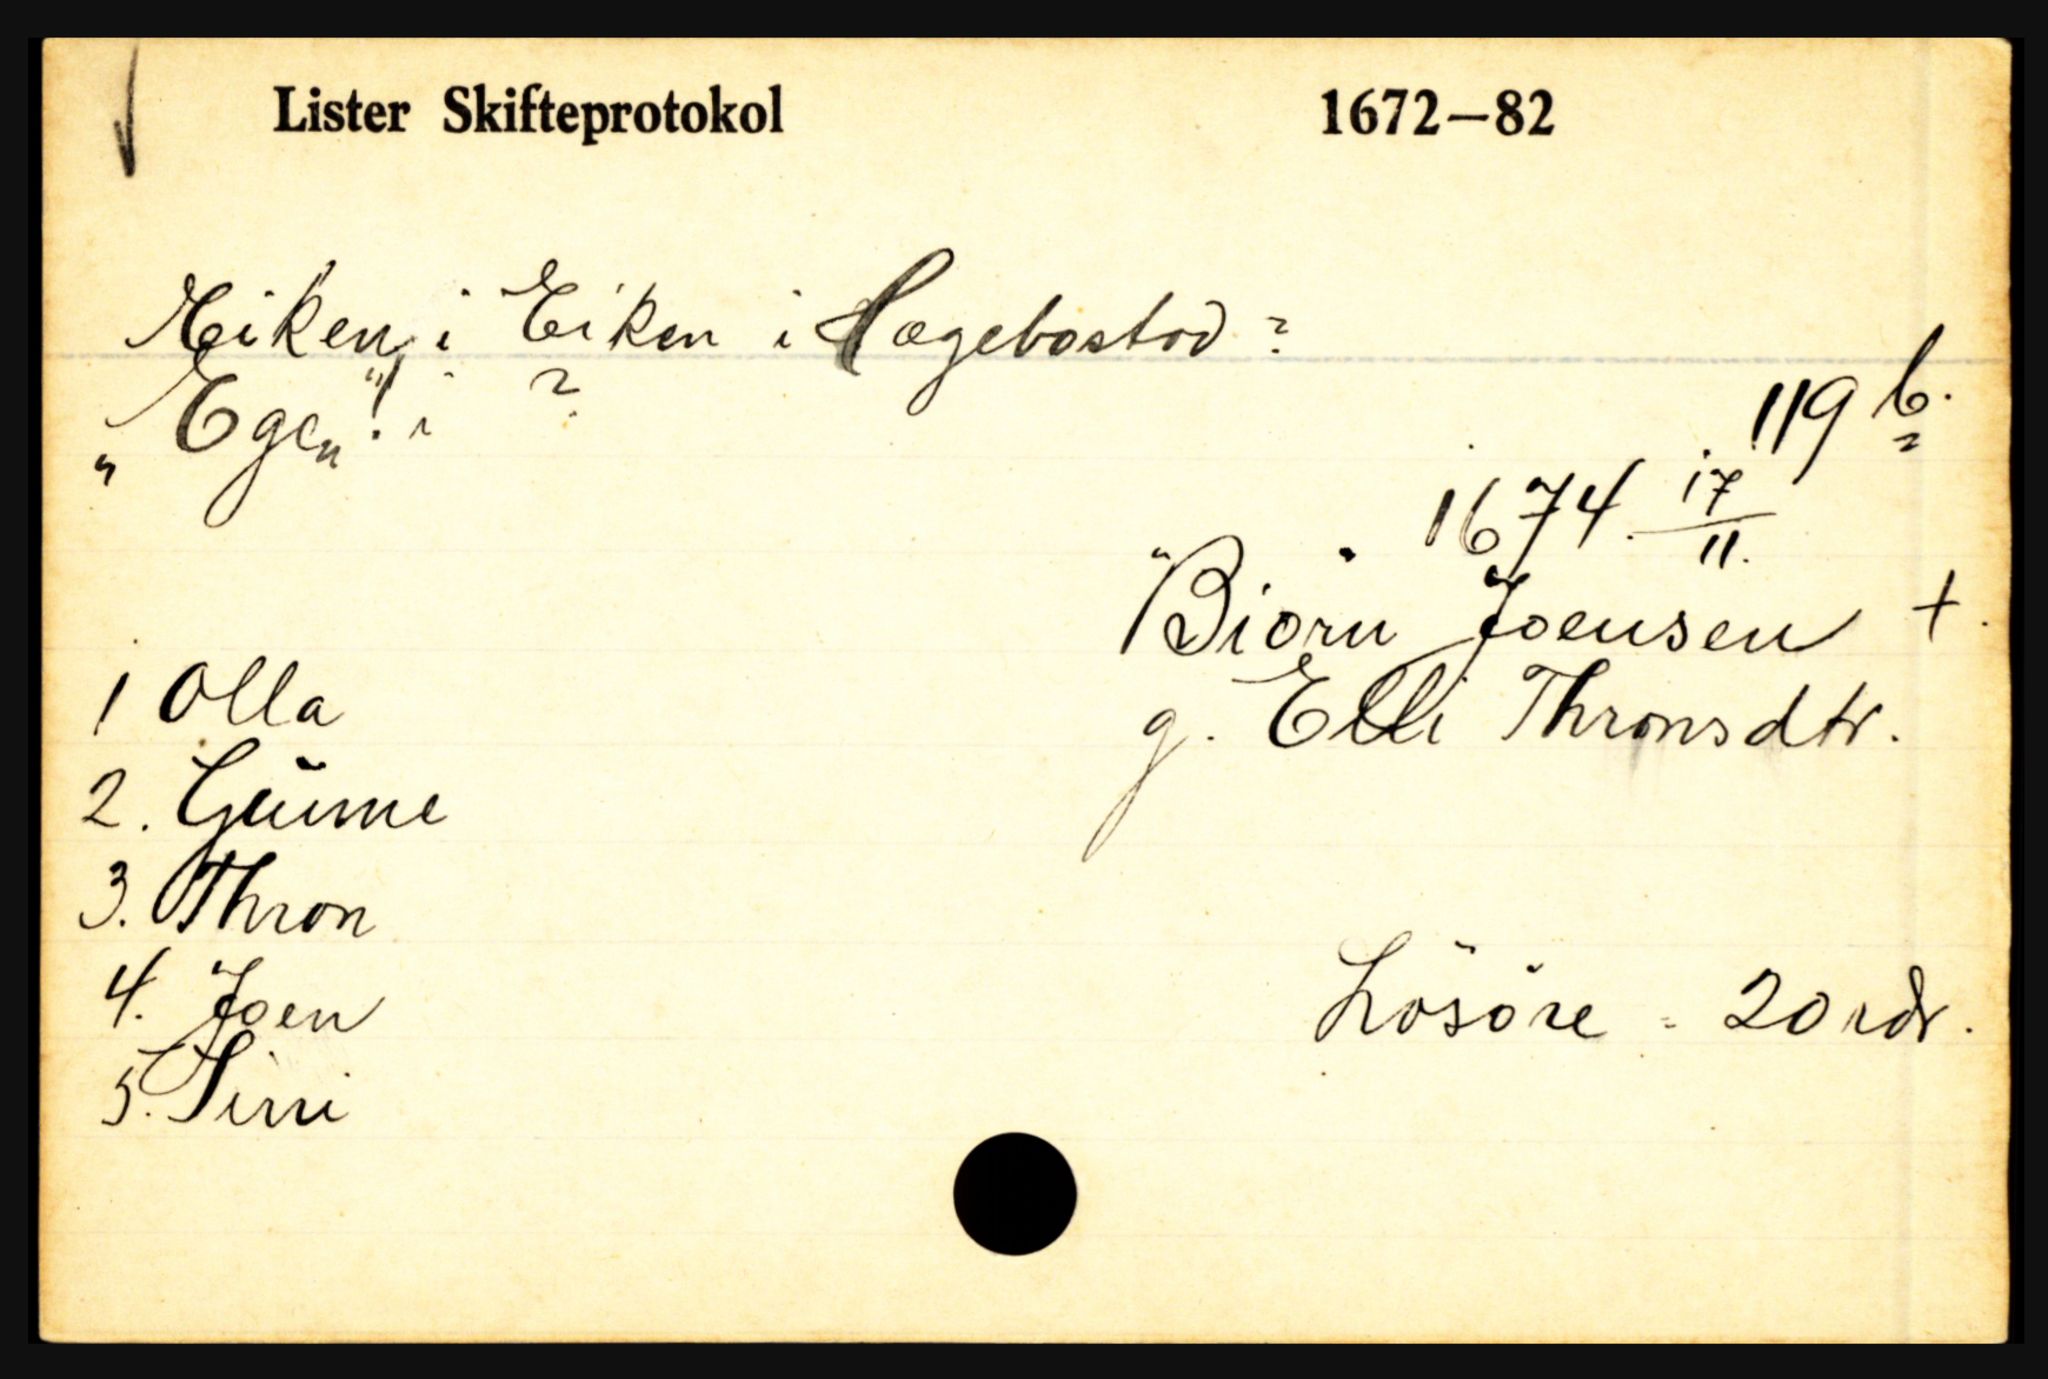 Lister Skifteprotokol 1672—82
Eiken, i Eiken i Hægebostad ?
„Egen"! i ?
119 b.
1674. 17/11.
Biörn Joensen +.
g. Elli Thronsdtr.
1 Olla
2. Gunne
3. Thron
4. Joen
5. Sirri
Lösöre = 20 rdr.